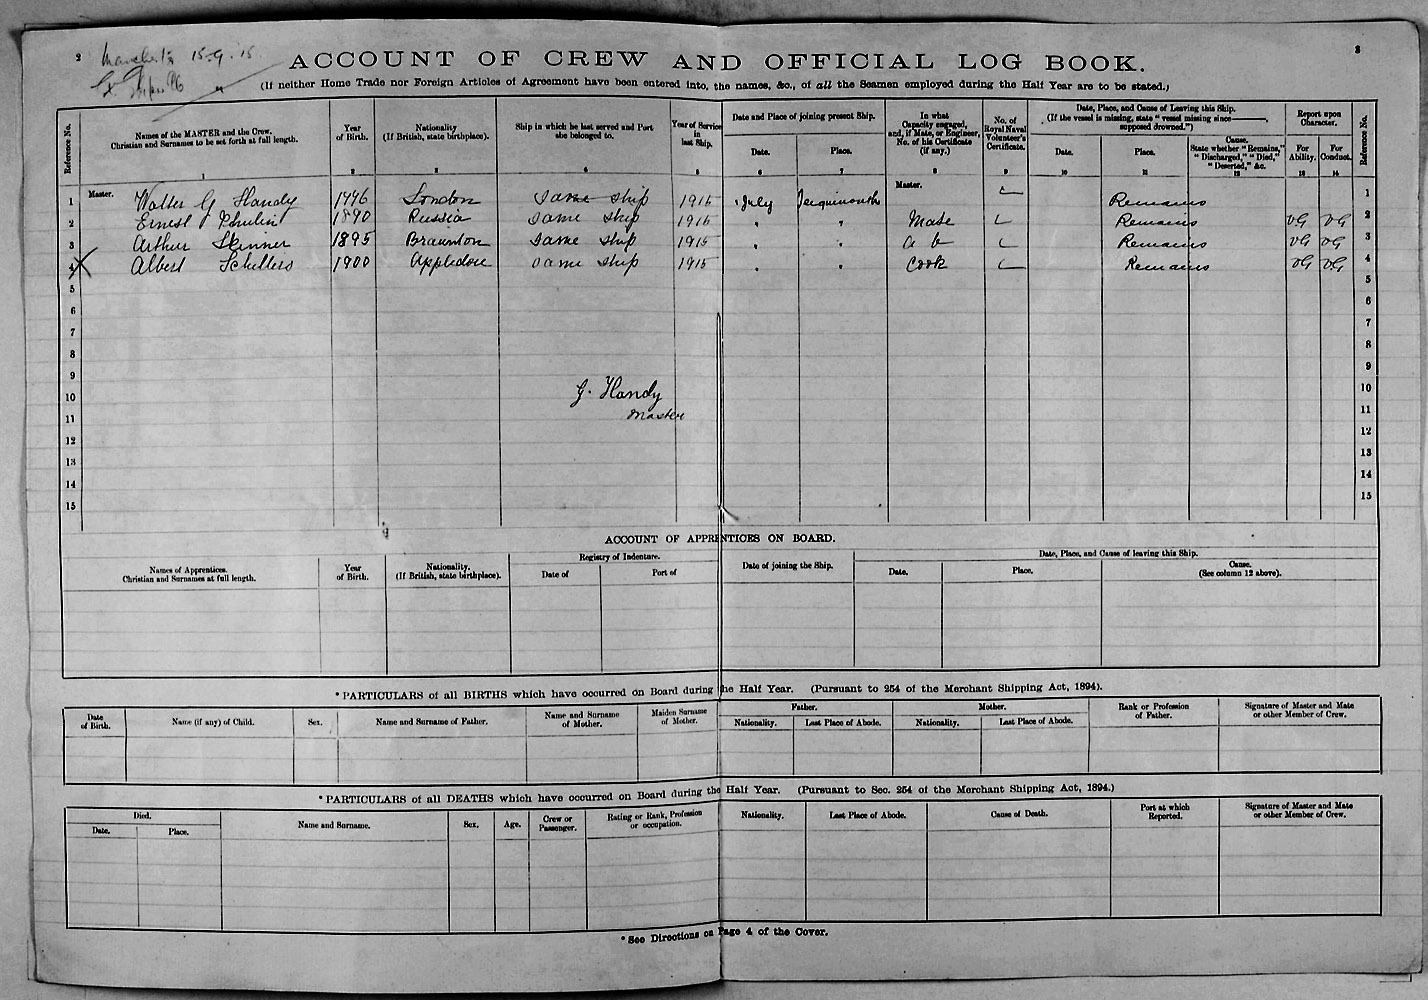 2
15-9-'15
3
ACCOUNT OF CREW AND OFFICIAL LOG BOOK.
(If neither Home Trade nor Foreign Articles of Agreement have been entered into, the names, &c., of all the Seamen employed during the Half Year are to be stated.)
Reference No. Names of the MASTER and the Crew. Christian and Surnames to be set forth at full length. Year of Birth. Nationality (If British, state birthplace). Ship in which he last served and Port she belonged to. Year of Service in last Ship. Date and Place of joining present Ship. Date. Place. In what Capacity engaged, and, if Mate, or Engineer, No. of his Certificate (if any.) No. of Royal Naval Volunteer's Certificate. Date, Place, and Cause of Leaving this Ship. (If the vessel is missing, state "vessel missing since———, supposed drowned.") Date. Place. Cause. State whether "Remains," "Discharged," "Died," "Deserted," &c. Report upon Character. For Ability. For Conduct. Reference No.
1 2 3 4 5 6 7 8 9 10 11 12 13 14
1 Master. Walter G Handy London same ship 1915 July Master. Remains 1
2 Ernest 1890 Russia same ship 1915 " " Mate Remains VG VG 2
3 Arthur Skinner 1895 Braunton same ship 1915 " " a b Remains VG VG 3
4 Albert 1900 Appledore same ship 1915 " " Cook Remains VG VG 4
5 5
6 6
7 7
8 8
9 9
10 G. Handy 10
11 Master 11
12 12
13 13
14 14
15 15
ACCOUNT OF APPRENTICES ON BOARD.
Names of Apprentices. Christian and Surnames at full length. Year of Birth. Nationality. (If British, state birthplace). Registry of Indenture. Date of Port of Date of joining the Ship. Date, Place, and Cause of leaving this Ship. Date. Place. Cause. (See column 12 above).
* PARTICULARS of all BIRTHS which have occurred on Board during the Half Year. (Pursuant to 254 of the Merchant Shipping Act, 1894).
Date of Birth. Name (if any) of Child. Sex. Name and Surname of Father. Name and Surname of Mother. Maiden Surname of Mother. Father. Nationality. Last Place of Abode. Mother. Nationality. Last Place of Abode. Rank or Profession of Father. Signature of Master and Mate or other Member of Crew.
* PARTICULARS of all DEATHS which have occurred on Board during the Half Year. (Pursuant to Sec. 254 of the Merchant Shipping Act, 1894.)
Died. Date. Place. Name and Surname. Sex. Age. Crew or Passenger. Rating or Rank, Profession or occupation. Nationality. Last Place of Abode. Cause of Death. Port at which Reported. Signature of Master and Mate or other Member of Crew.
* See Directions on Page 4 of the Cover.